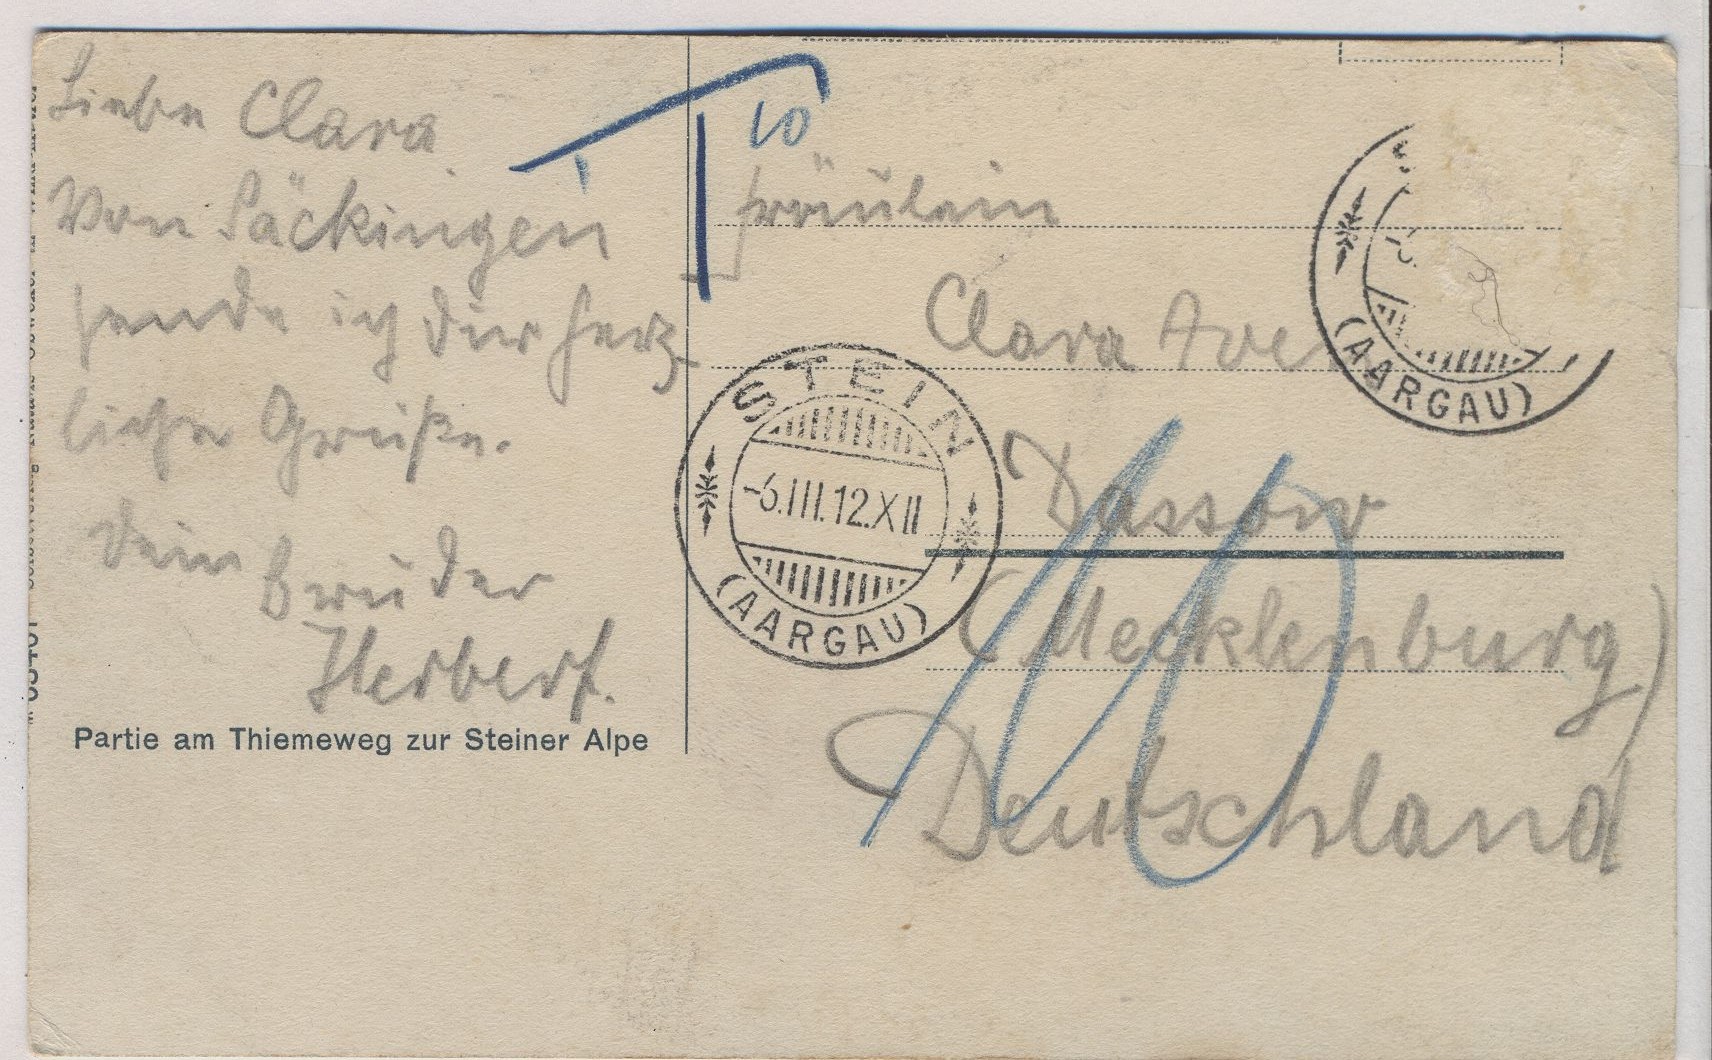 Liebe Clara.
Von Säckingen
sende ich dir herz-
liche Grüße.
dein bruder
Herbert.
Partie am Thiemeweg zur Steiner Alpe
T 10
Fräulein
Clara
Dassow
(Mecklenburg)
Deutschland
10
STEIN
-6.III.12.XII
(AARGAU)
(AARGAU)